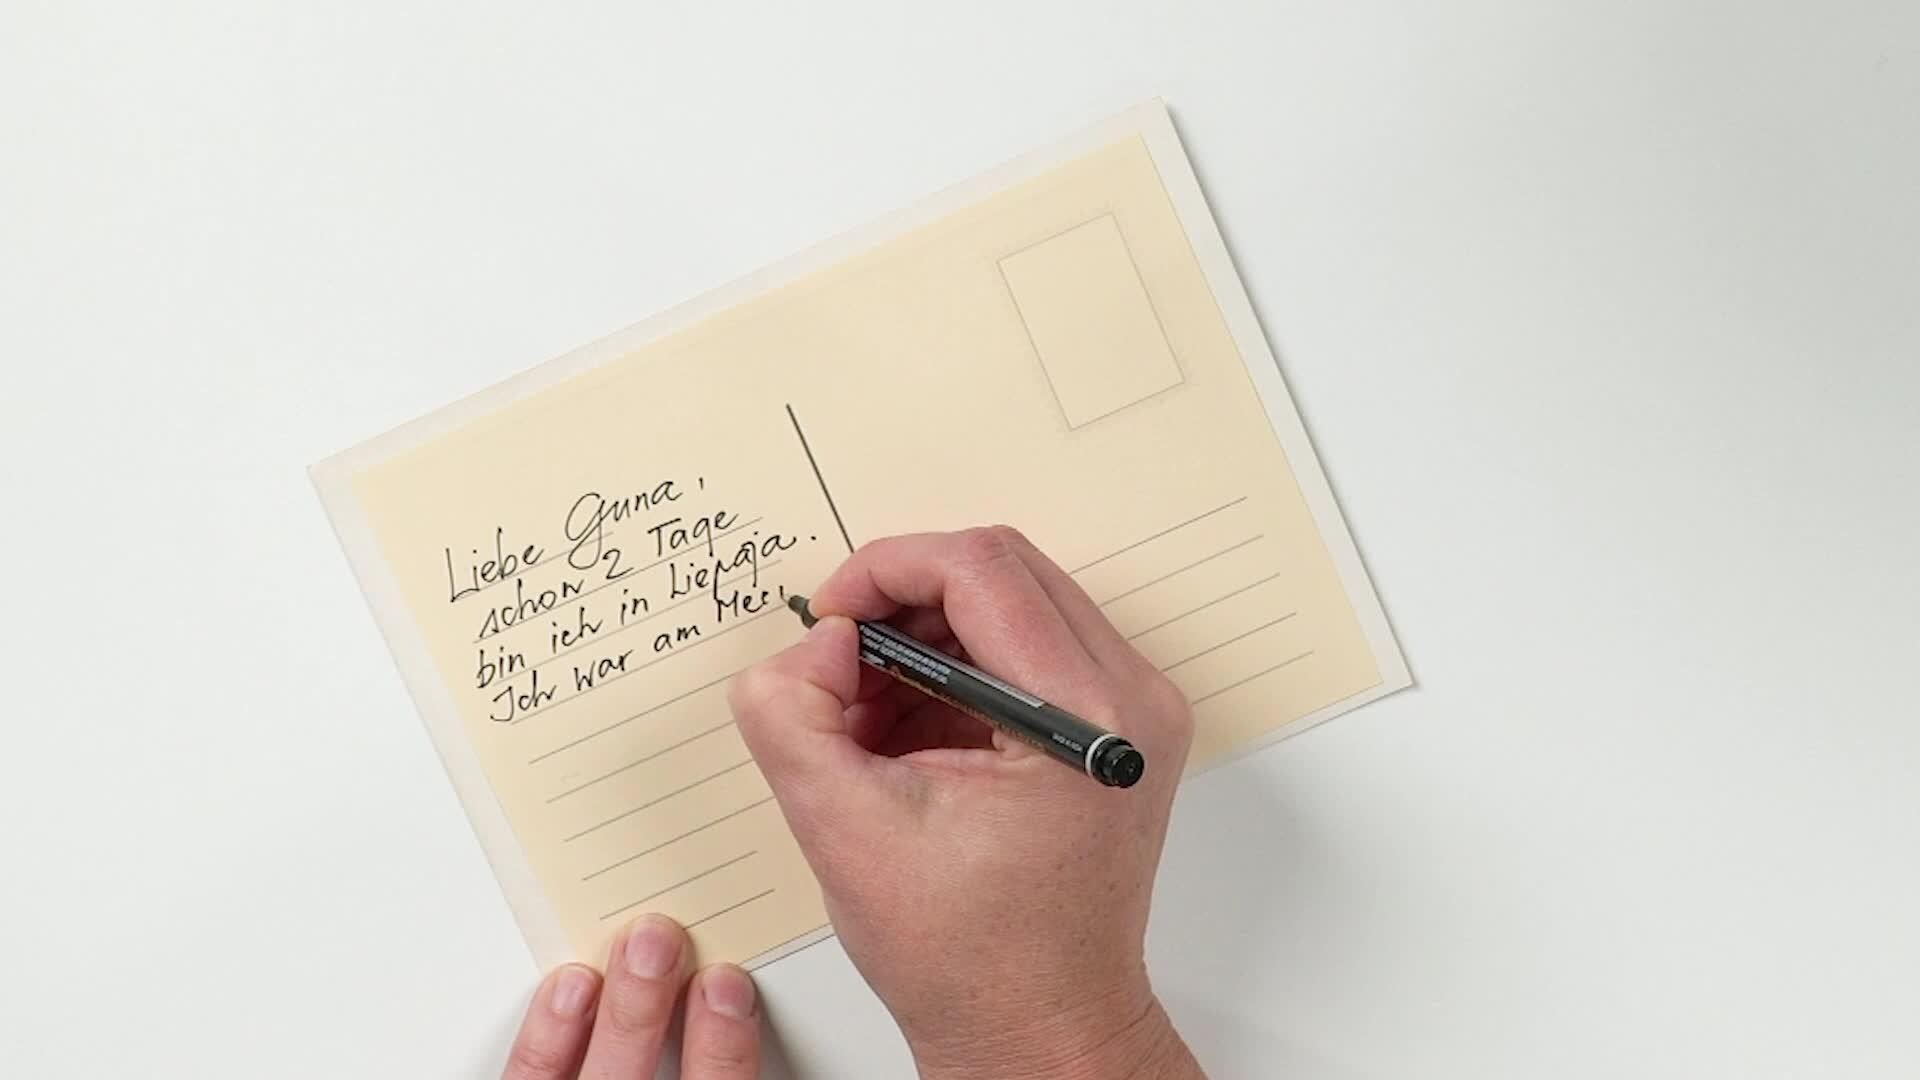 Liebe Guna,
schon 2 Tage
bin ich in Liepaja.
Ich war am Mee